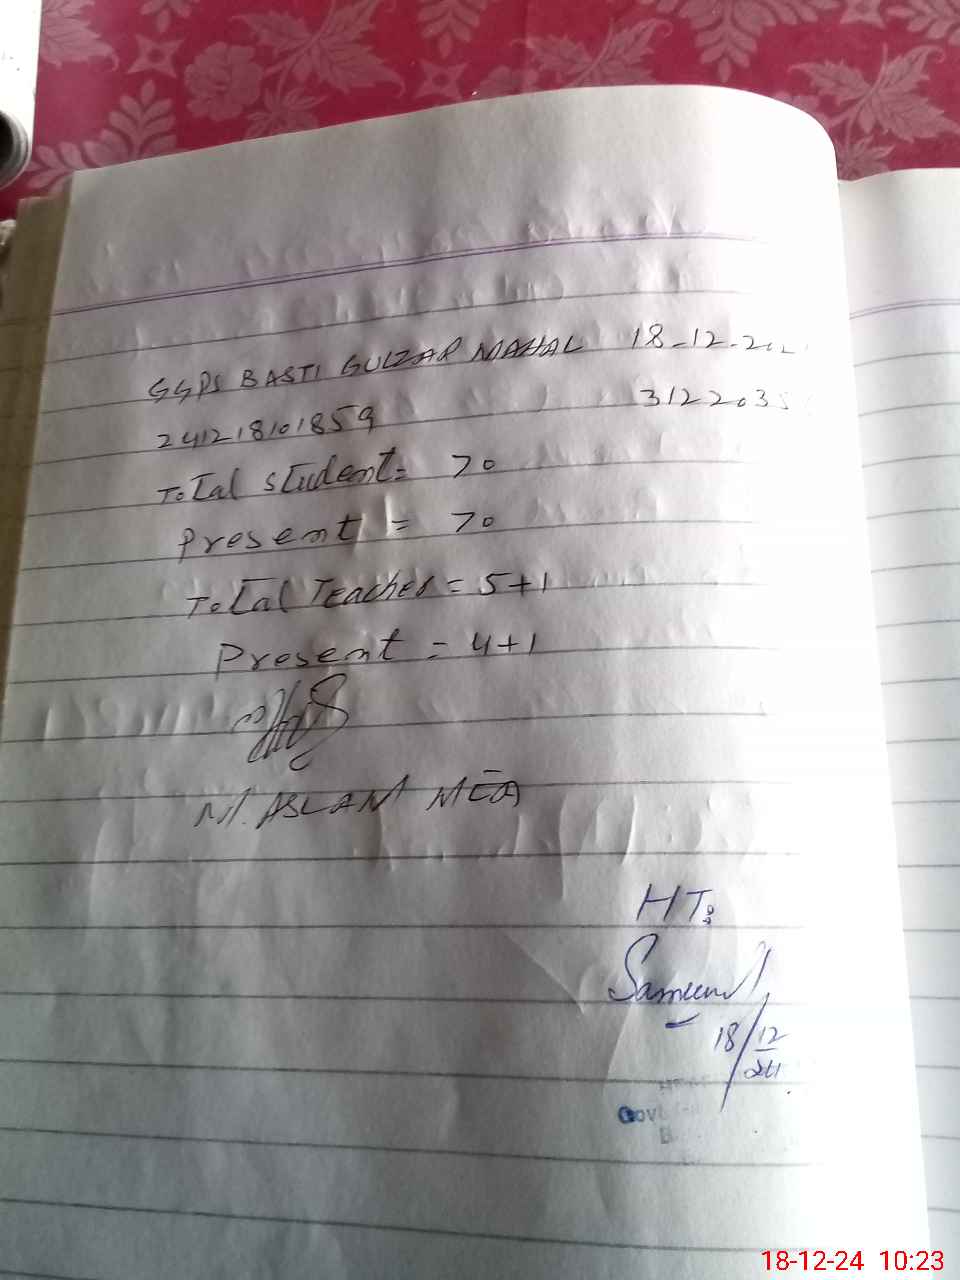 GGPS BASTI GULZAR MAHAL 18-12-202
241218101859 3122035
Total student = 70
Present = 70
Total Teacher = 5+1
Present = 4+1
M. ASLAM MEA
HT:
18/12/24
Govt
18-12-24 10:23